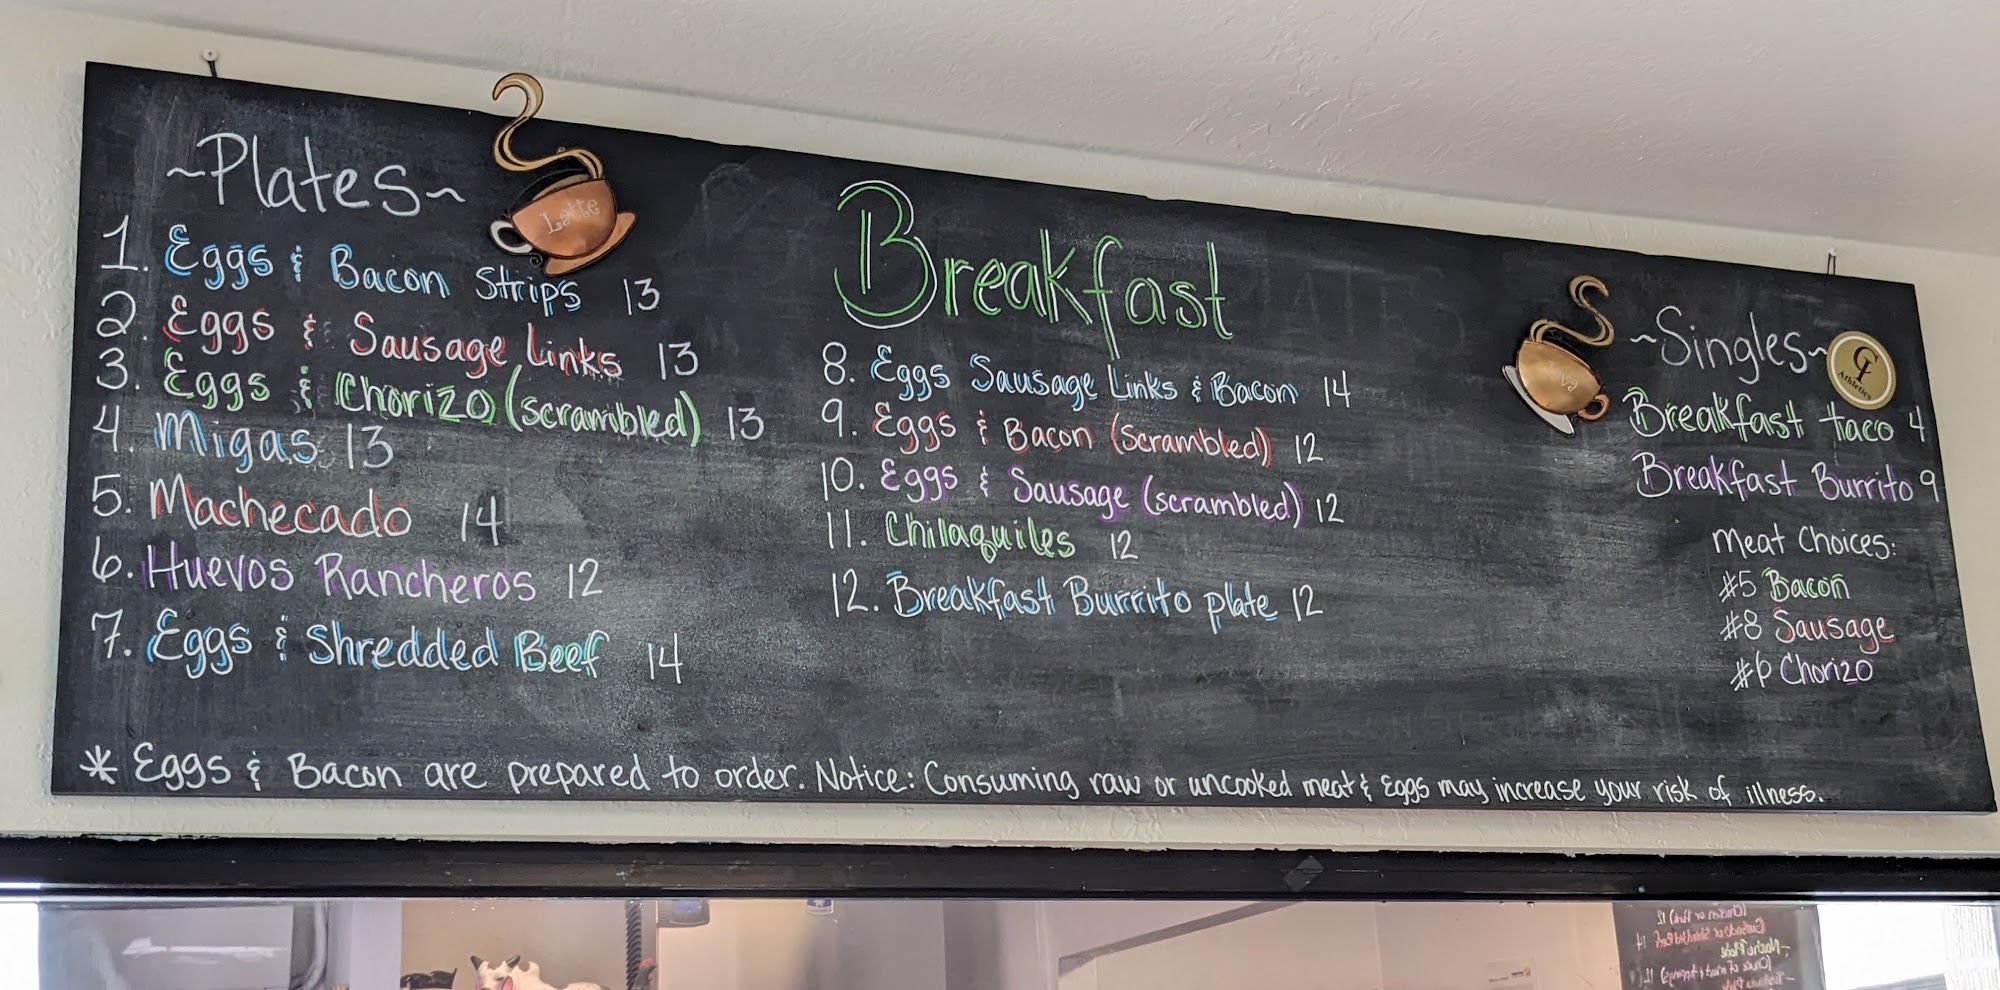 ~Plates~
1. Eggs & Bacon Strips 13
2. Eggs & Sausage Links 13
3. Eggs & Chorizo (scrambled) 13
4. Migas 13
5. Machecado 14
6. Huevos Rancheros 12
7. Eggs & Shredded Beef 14
Latte
Breakfast
8. Eggs Sausage Links & Bacon 14
9. Eggs & Bacon (scrambled) 12
10. Eggs & Sausage (scrambled) 12
11. Chilaquiles 12
12. Breakfast Burrito plate 12
~Singles~
Athletics
Breakfast taco 4
Breakfast Burrito 9
Meat Choices:
#5 Bacon
#8 Sausage
#6 Chorizo
* Eggs & Bacon are prepared to order. Notice: Consuming raw or uncooked meat & Eggs may increase your risk of illness.